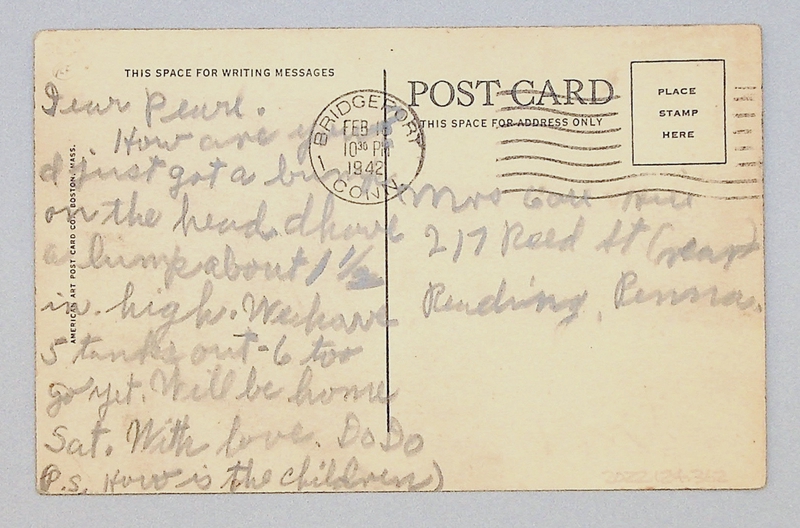 THIS SPACE FOR WRITING MESSAGES
Dear Pearl.
How are you
I just got a bump
on the head. I have
a lump about 1 1/2
in. high. We have
5 tanks out - 6 too
go yet. Will be home
Sat. With love. DoDo
P.s. How is the children)
AMERICAN ART POST CARD CO., BOSTON, MASS.
POST CARD
THIS SPACE FOR ADDRESS ONLY
PLACE
STAMP
HERE
BRIDGEPORT
FEB
10 30 PM
1942
CONN
Mrs
217 Reed St (rear)
Reading, Penna.
2022.124.312